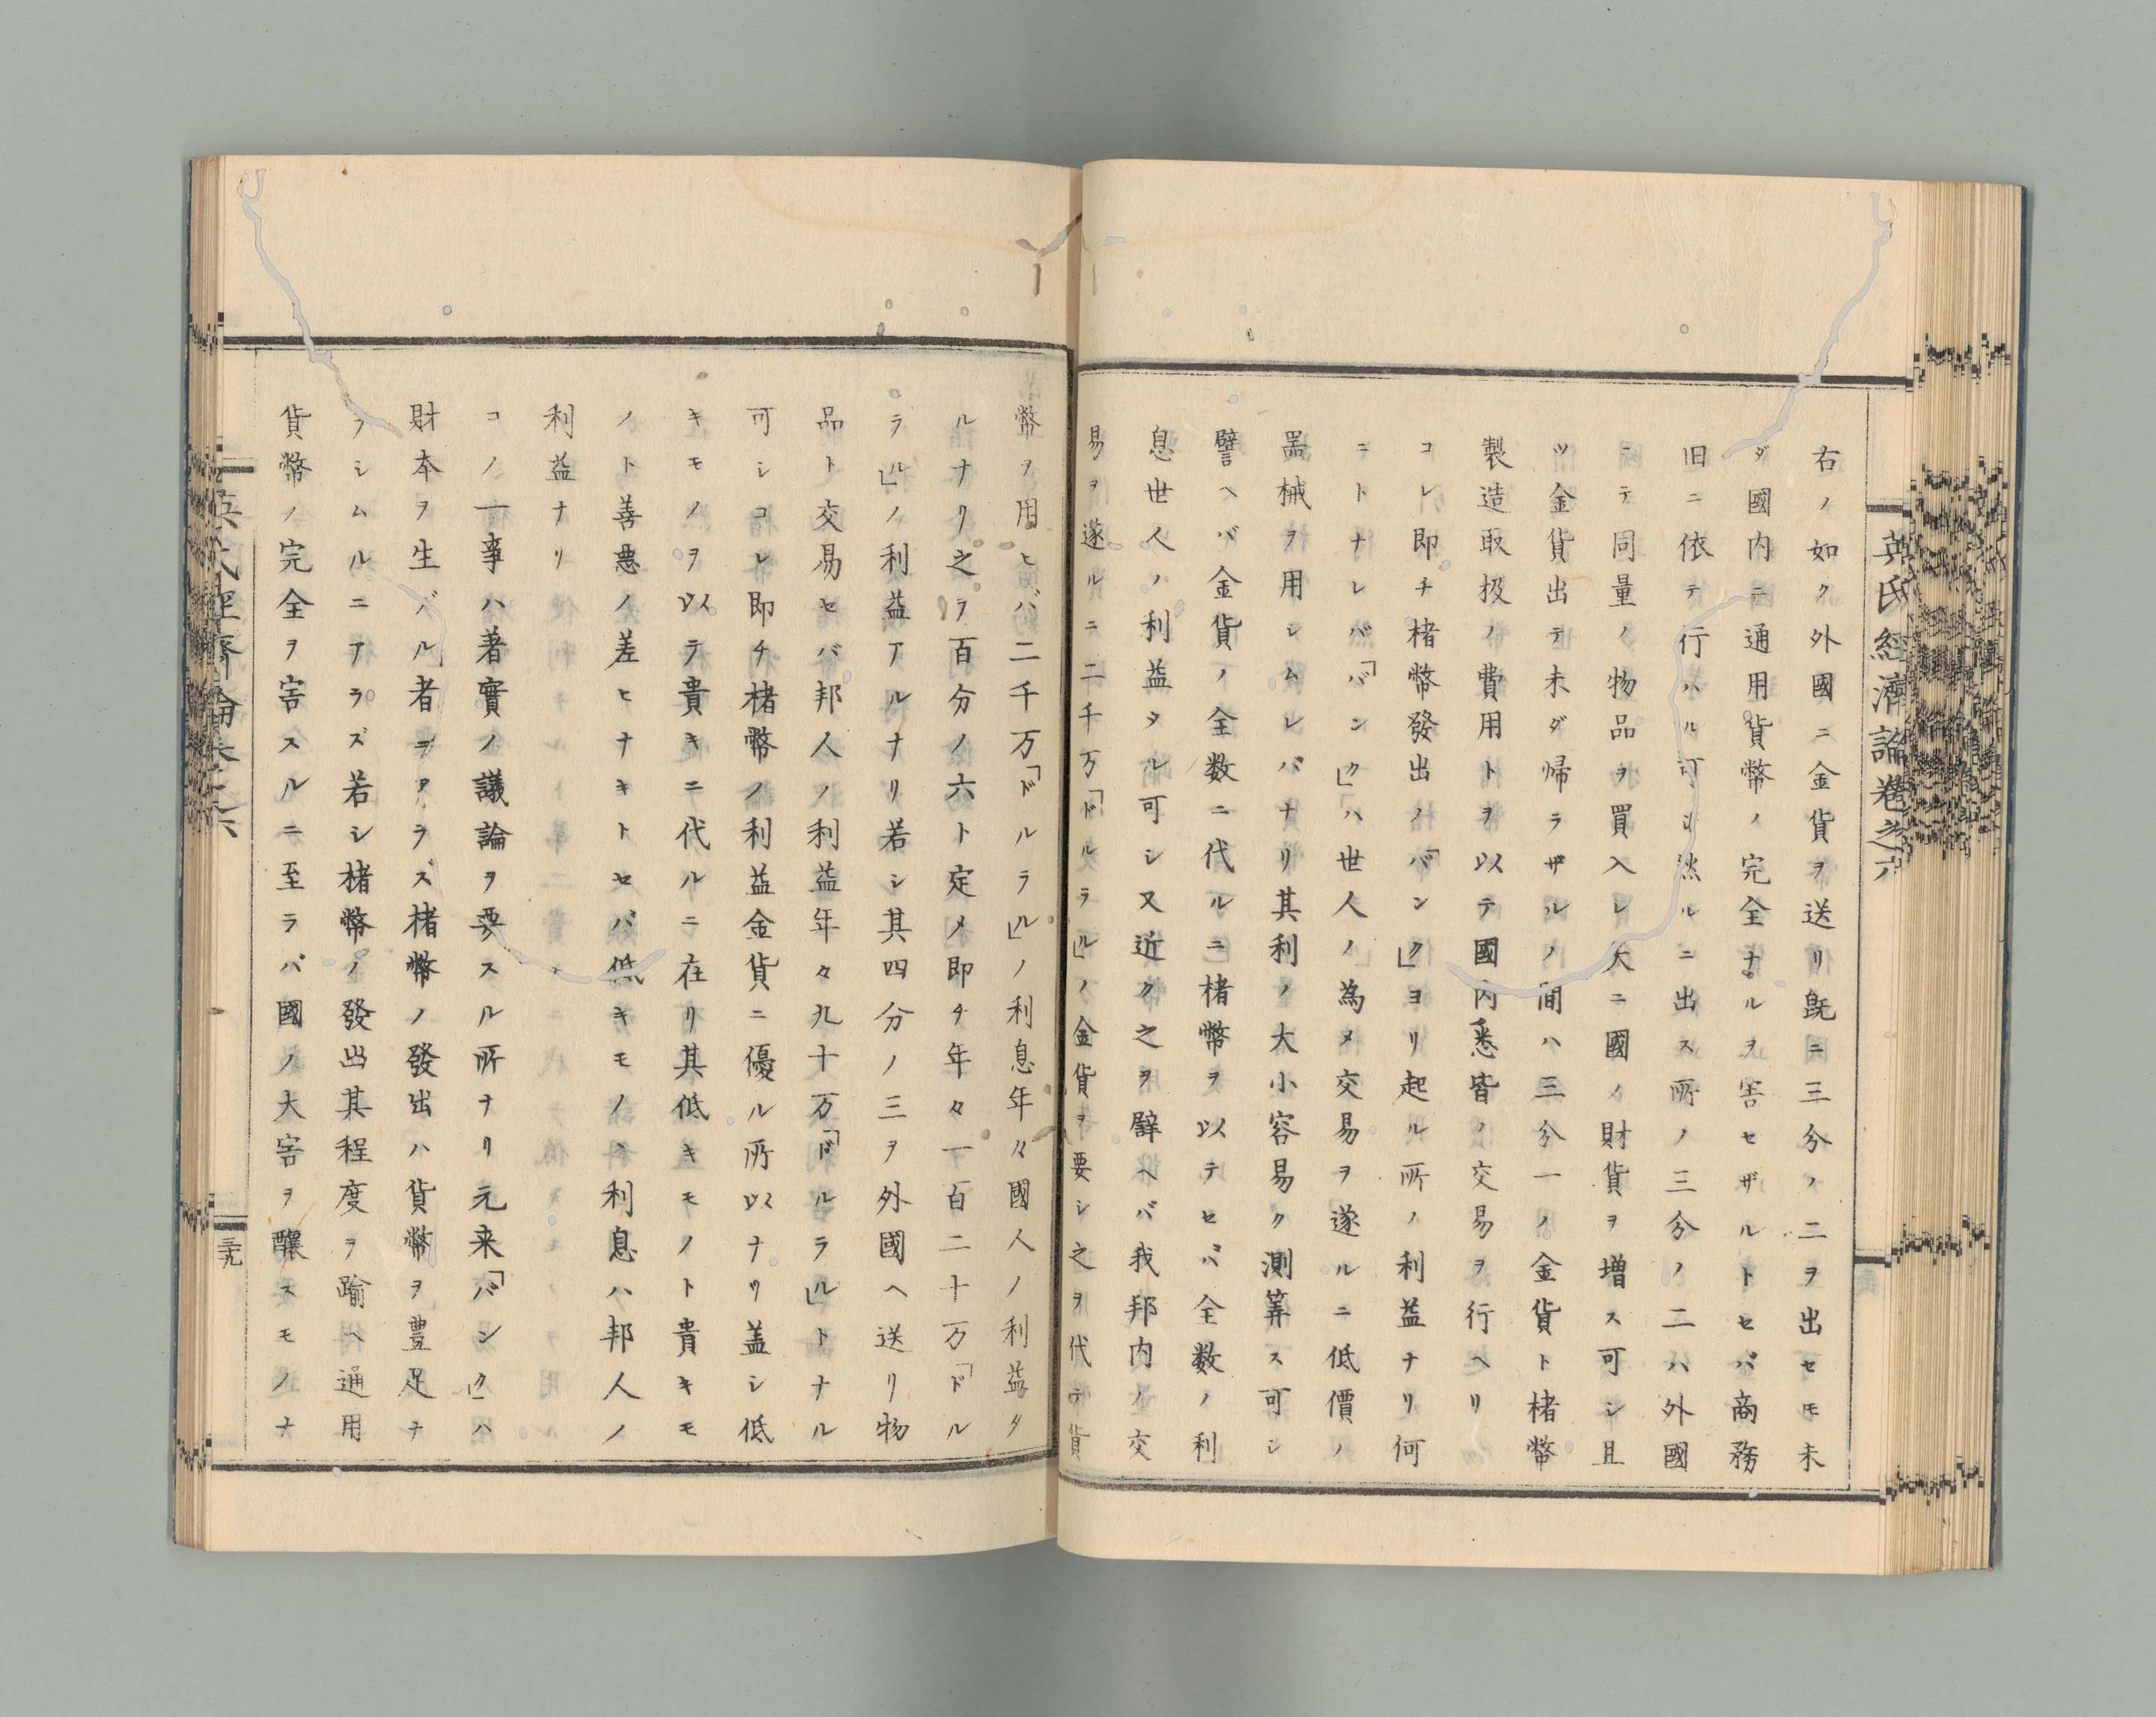 英氏經濟論卷之六
右ノ如ク外國ニ金貨ヲ送リ既ニ三分ノ二ヲ出セモ未
ダ國内ニ通用貨幣ノ完全ナルヲ害セザルトセバ商務
旧ニ依テ行ハル可シ然ルニ出ス所ノ三分ノ二ハ外國
ニテ同量ノ物品ヲ買入レ大ニ國ノ財貨ヲ増ス可シ且
ツ金貨出テ未ダ帰ラザルノ間ハ三分一ノ金貨ト楮幣
製造取扱ノ費用トヲ以テ國内悉皆ノ交易ヲ行ヘリ
コレ即チ楮幣發出ノ「バンク」ヨリ起ル所ノ利益ナリ何
ニトナレバ「バンク」ハ世人ノ為メ交易ヲ遂ルニ低價ノ
噐械ヲ用シムレバナリ其利ノ大小容易ク測筭ス可シ
譬ヘバ金貨ノ全数ニ代ルニ楮幣ヲ以テセバ全数ノ利
息世人ノ利益タル可シ又近ク之ヲ譬ヘバ我邦内ノ交
易ヲ遂ルニ二千万「ドルラル」ノ金貨ヲ要シ之ヲ代テ貨
幣ヲ用ヒバ二千万「ドルラル」ノ利息年々國人ノ利益タ
ルナリ之ヲ百分ノ六ト定メ即チ年々一百二十万「ドル
ラル」ノ利益アルナリ若シ其四分ノ三ヲ外國ヘ送リ物
品ト交易セバ邦人ノ利益年々九十万「ドルラル」トナル
可シコレ即チ楮幣ノ利益金貨ニ優ル所以ナリ盖シ低
キモノヲ以テ貴キニ代ルニ在リ其低キモノト貴キモ
ノト善悪ノ差ヒナキトセバ低キモノヽ利息ハ邦人ノ
利益ナリ
コノ一事ハ著實ノ議論ヲ要スル所ナリ元来「バンク」ハ
財本ヲ生ズル者ニアラズ楮幣ノ發出ハ貨幣ヲ豊足ナ
ラシムルニアラズ若シ楮幣ノ發出其程度ヲ踰ヘ通用
貨幣ノ完全ヲ害スルニ至ラバ國ノ大害ヲ釀スモノナ
英氏經濟論卷之六
三十九